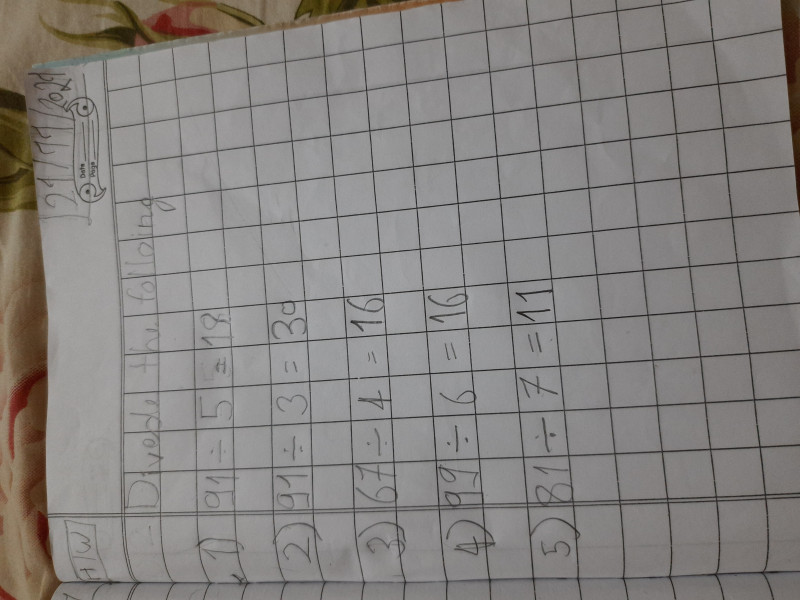 H W
21/11/2021
Date
Page
- Divede the folloing
1) 91 ÷ 5 = 18
2) 91 ÷ 3 = 30
3) 67 ÷ 4 = 16
4) 99 ÷ 6 = 16
5) 81 ÷ 7 = 11